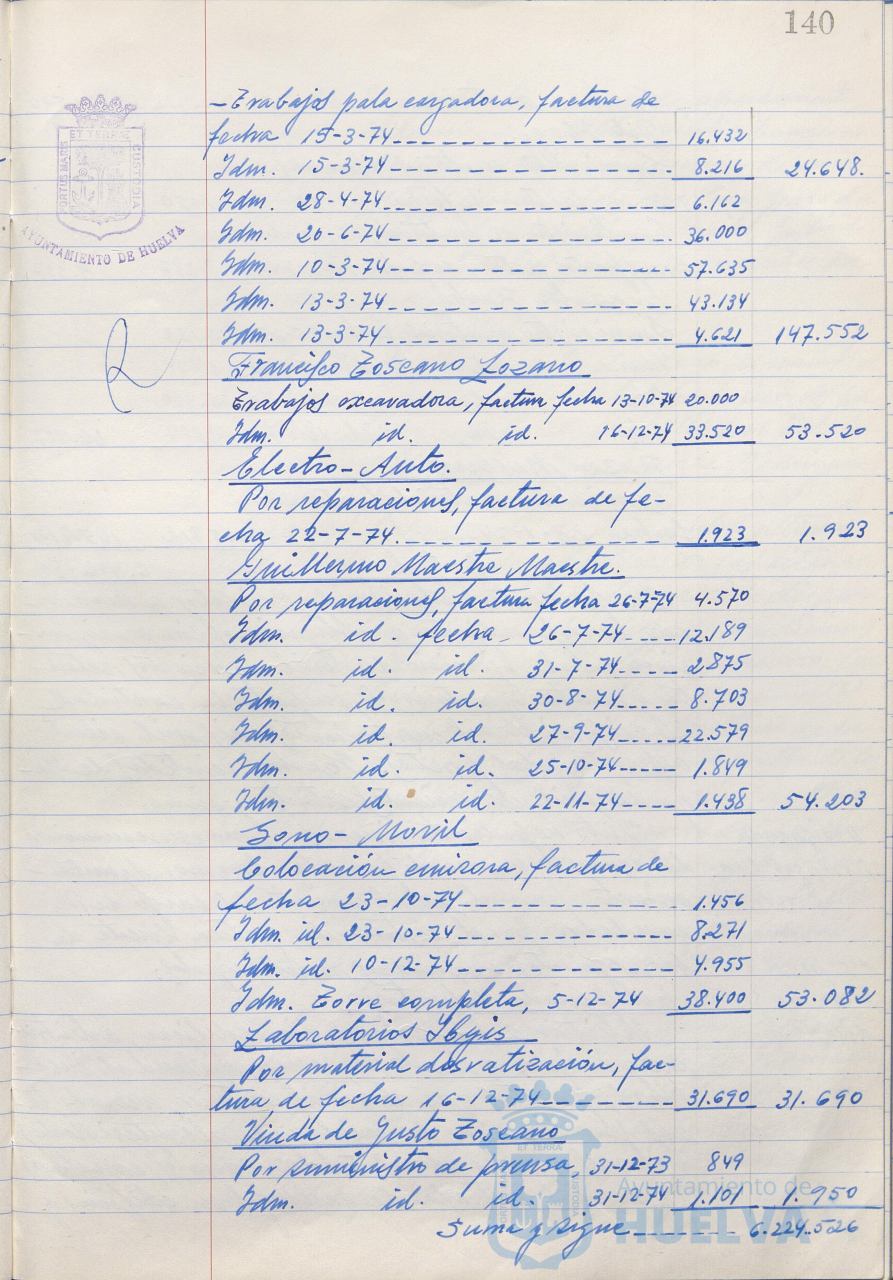 140
-Trabajos pala cargadora, factura de
fecha 15-3-74--------------- 16.432
Idm. 15-3-74--------------- 8.216 24.648.
Idm. 28-4-74--------------- 6.162
Idm. 20-6-74--------------- 36.000
Idm. 10-3-74--------------- 57.635
Idm. 13-3-74--------------- 43.134
Idm. 13-3-74--------------- 4.621 147.552
Francisco Toscano Lozano
Trabajos excavadora, factura fecha 13-10-74 20.000
Idm. id. id. 16-12-74 33.520 53.520
Electro-Auto.
Por reparaciones, factura de fe-
cha 22-7-74.--------------- 1.923 1.923
Guillermo Maestre Maestre.
Por reparaciones, factura fecha 26-7-74 4.570
Idm. id. fecha- 26-7-74----12.189
Idm. id. id. 31-7-74---- 2.875
Idm. id. id. 30-8-74----- 8.703
Idm. id. id. 27-9-74-----22.579
Idm. id. id. 25-10-74----- 1.849
Idm. id. id. 22-11-74---- 1.438 54.203
Sono-Movil
Colocación emisora, factura de
fecha 23-10-74------------ 1.456
Idm. id. 23-10-74------------ 8.271
Idm. id. 10-12-74------------ 4.955
Idm. Torre completa, 5-12-74 38.400 53.082
Laboratorios Ibys
Por material desratización, fac-
tura de fecha 16-12-74-------- 31.690 31.690
Viuda de Justo Toscano
Por suministro de prensa, 31-12-73 849
Idm. id. id. 31-12-74 1.101 1.950
Suma y sigue------- 6.224.526
PORTUS MARIS ET TERRAE CUSTODIA
AYUNTAMIENTO DE HUELVA
Ayuntamiento de
HUELVA